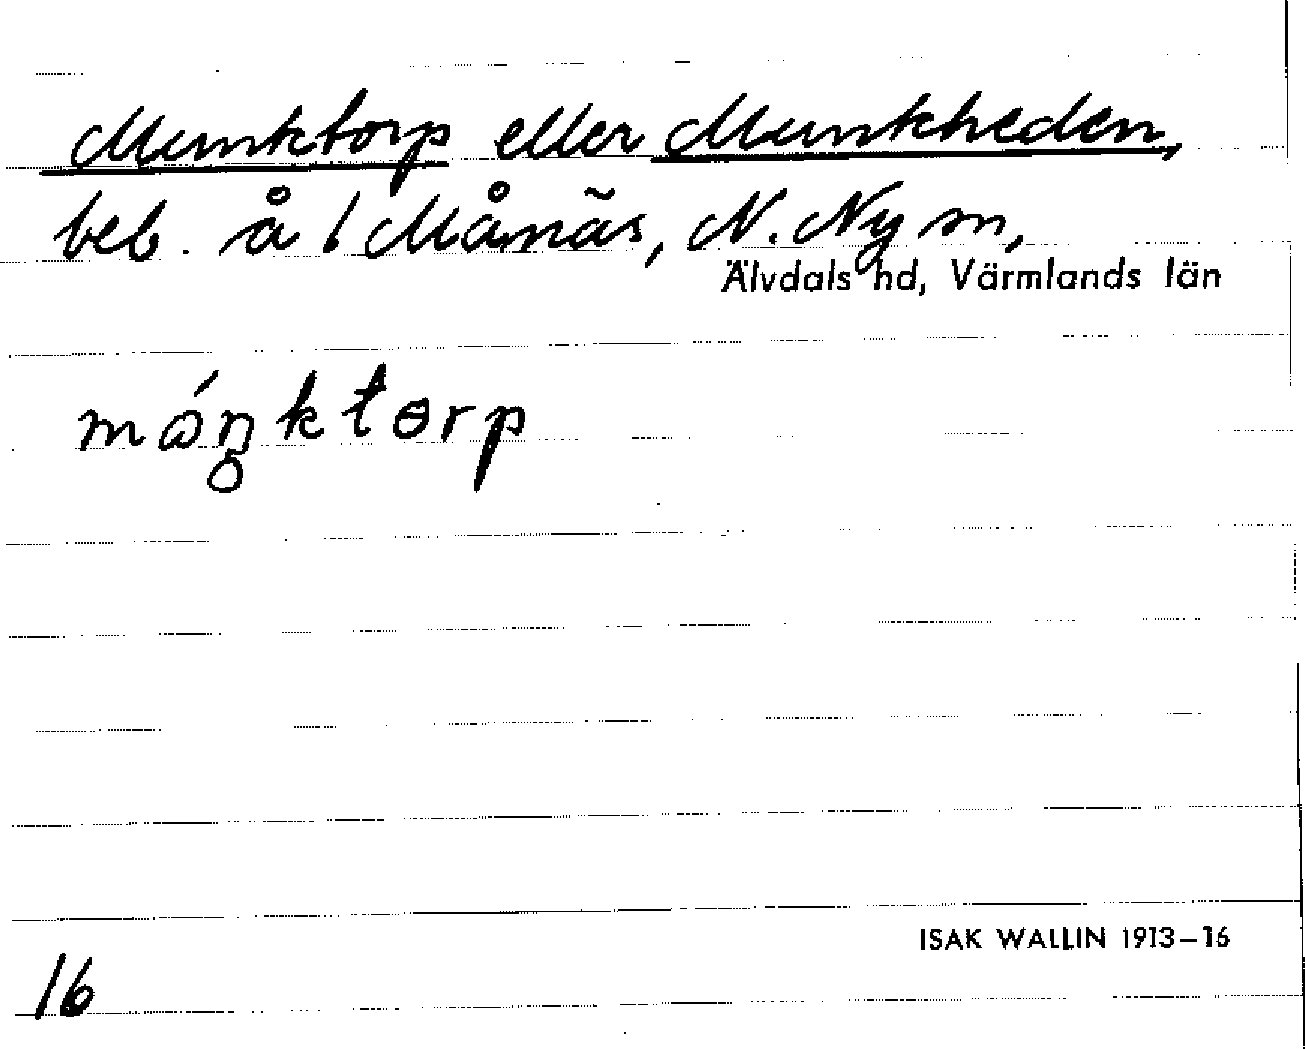 Munktorp eller Munkheden,
beb. å 1 Månäs, N. Ny sn,
Älvdals hd, Värmlands län
móŋktɵrp
ISAK WALLIN 1913–16
16